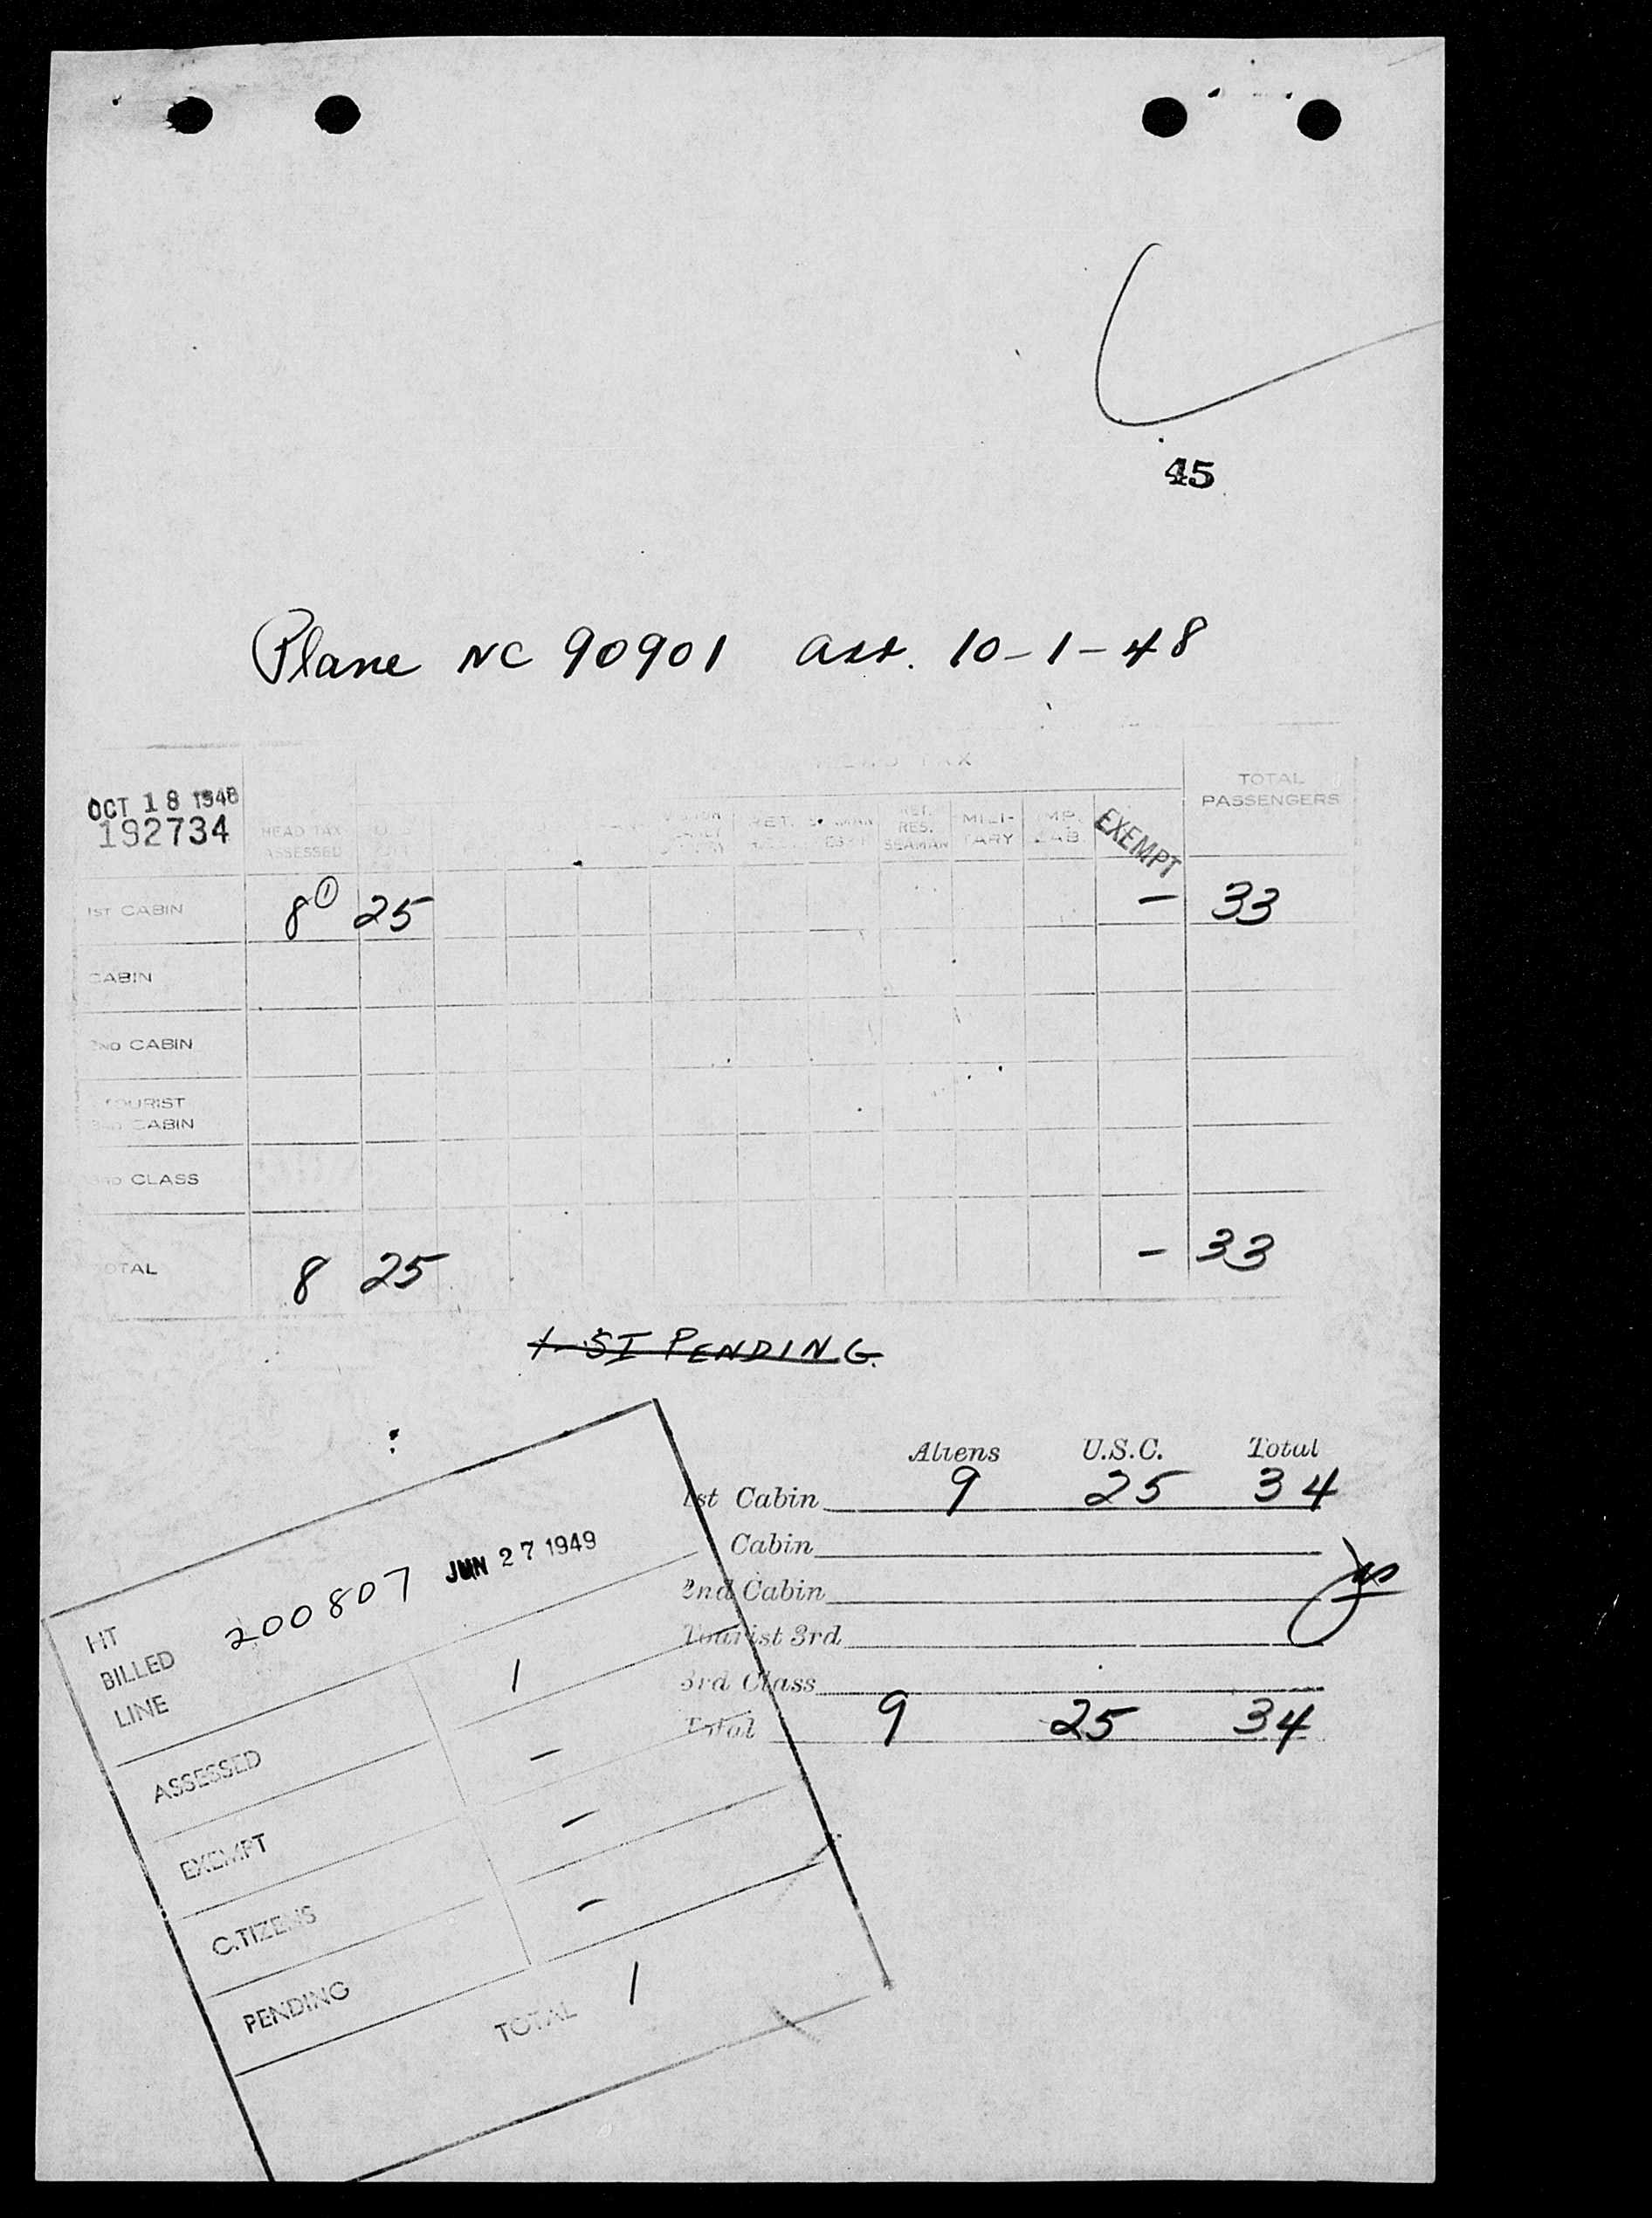 45
Plane NC 90901 arr. 10-1-48
TAX
OCT 18 1948
192734
HEAD TAX
ASSESSED
RET.
RET.
RES.
SEAMAN
MILI-
TARY
EXEMPT
TOTAL
PASSENGERS
1ST CABIN 8 ① 25 — 33
CABIN
2ND CABIN
TOURIST
3RD CABIN
3RD CLASS
TOTAL 8 25 — 33
1-SI PENDING
Aliens U.S.C. Total
1st Cabin 9 25 34
Cabin
2nd Cabin
Tourist 3rd
3rd Class
Total 9 25 34
HT
BILLED
LINE
200807 JUN 27 1949
ASSESSED 1
EXEMPT —
CITIZENS —
PENDING —
TOTAL 1